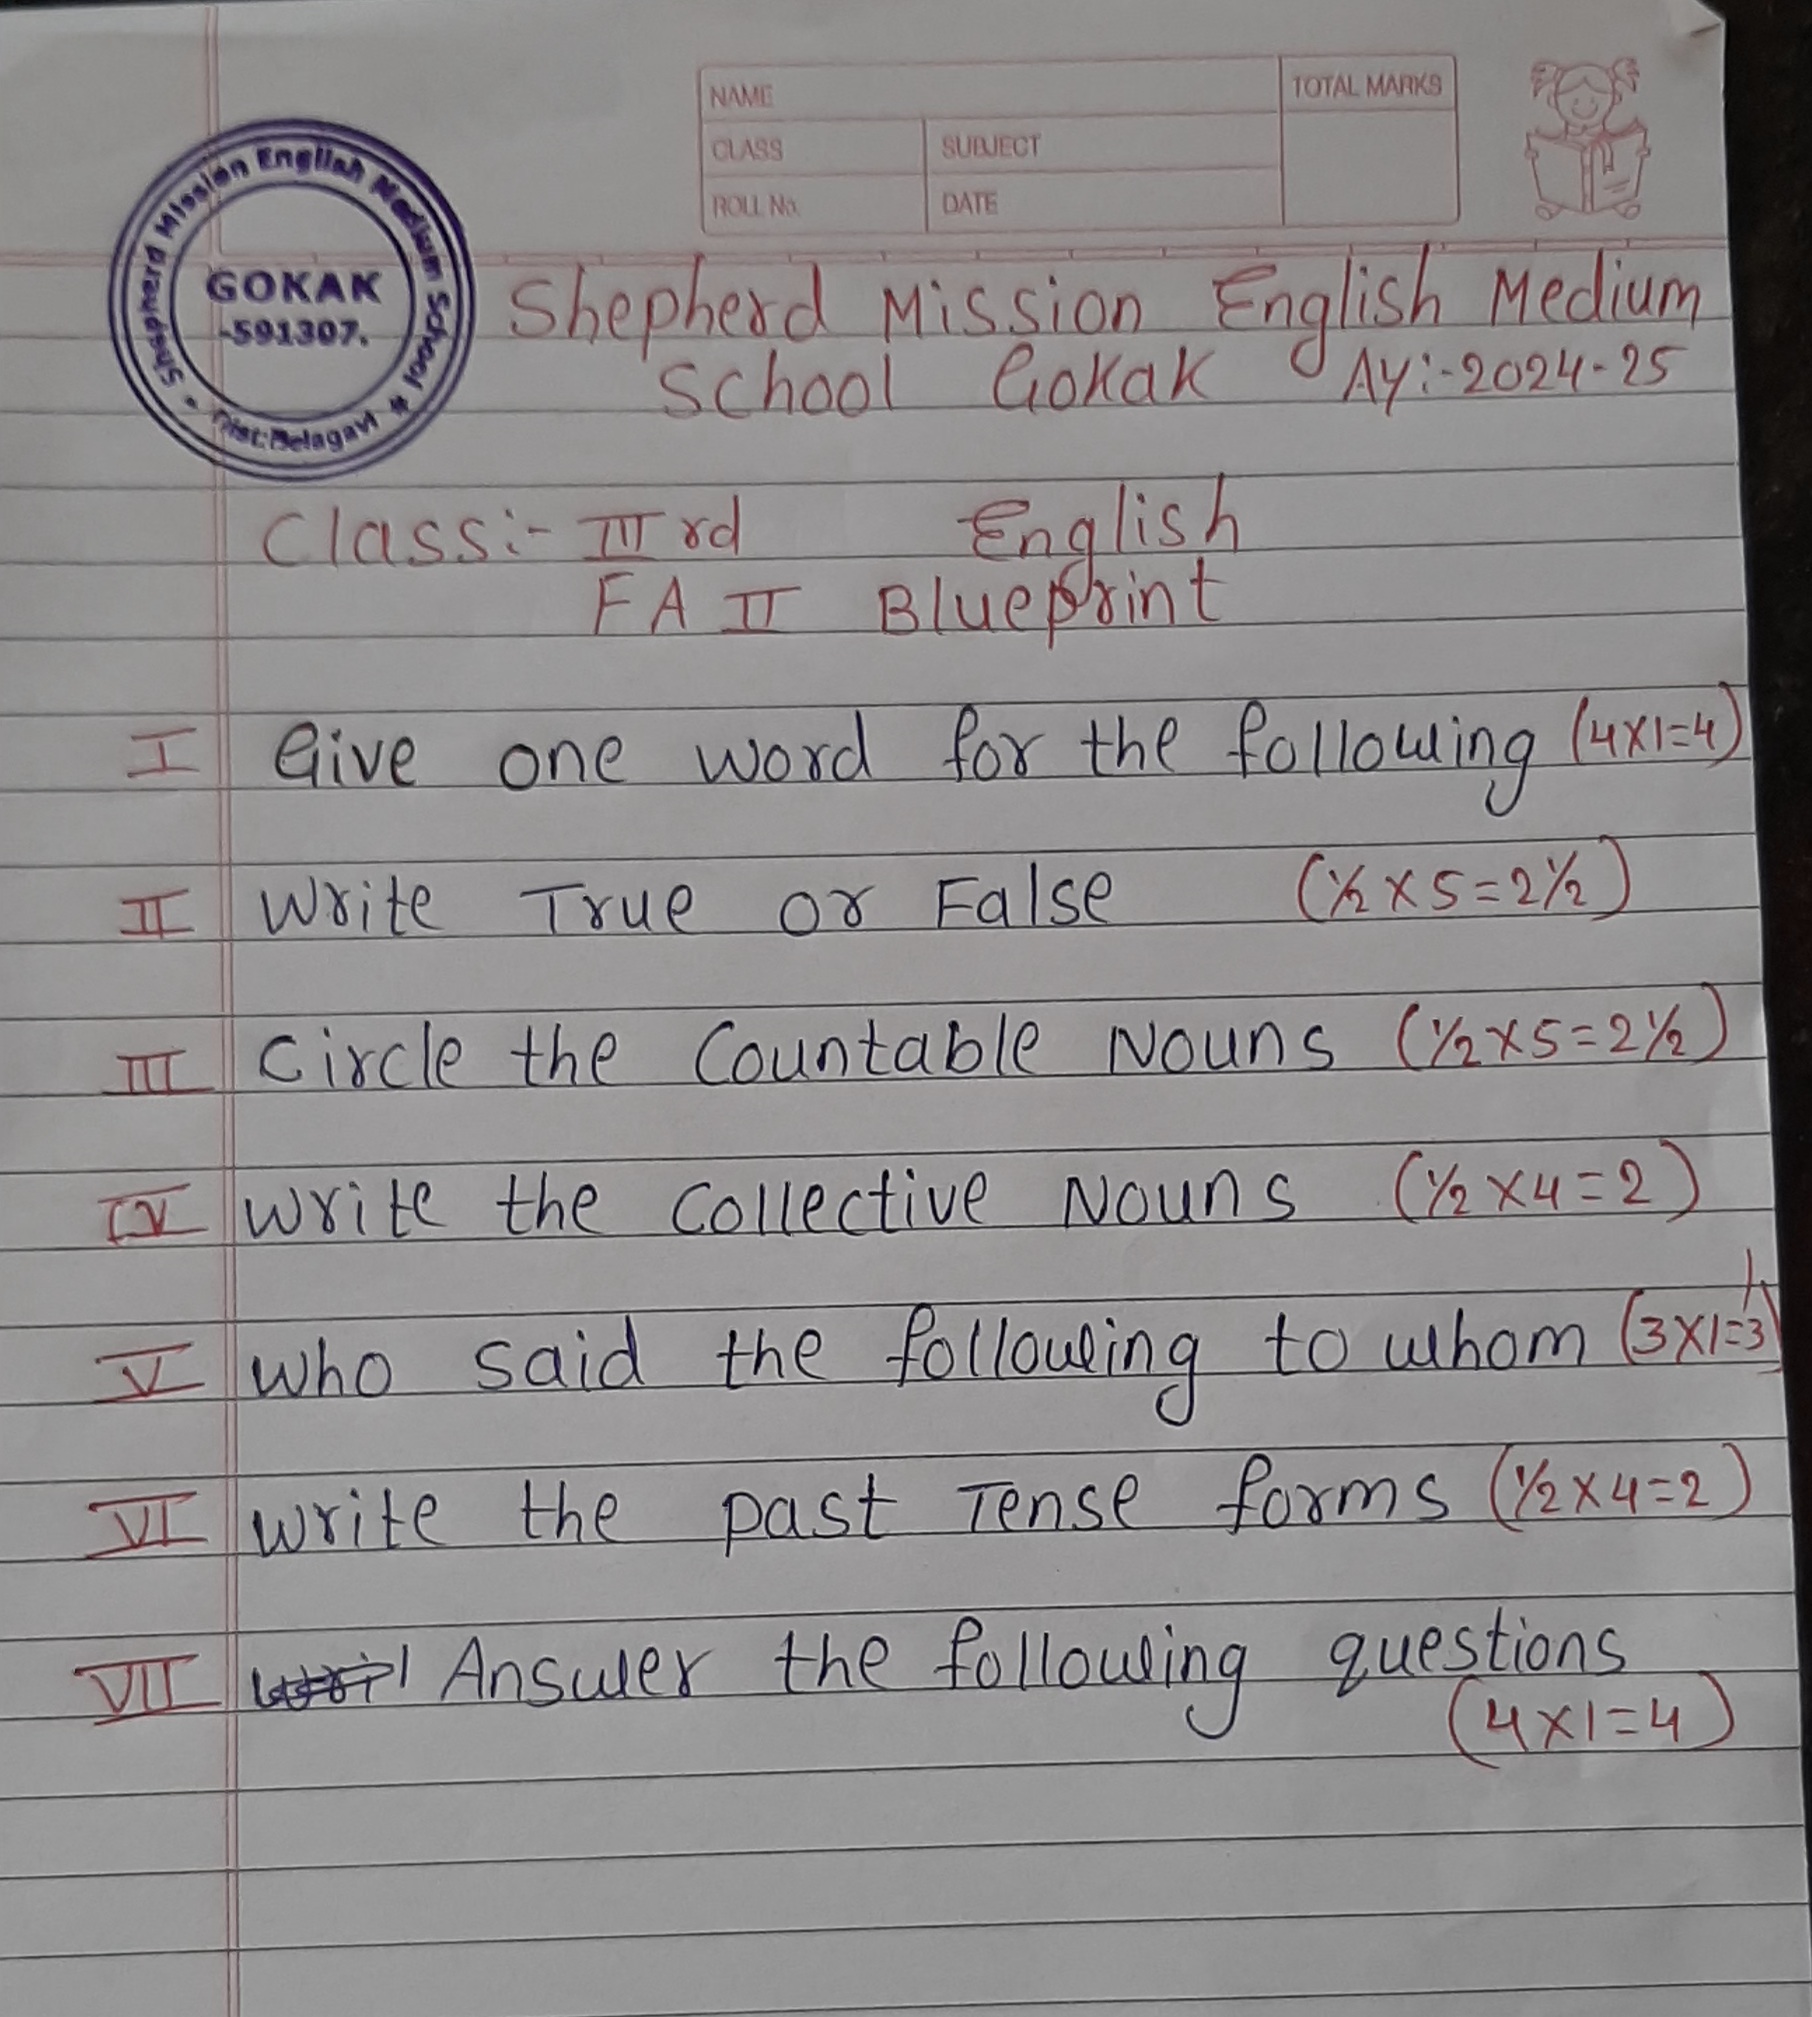 NAME
TOTAL MARKS
CLASS
SUBJECT
ROLL No.
DATE
Shepherd Mission English Medium School *
GOKAK
-591307.
Dist:Belagavi
Shepherd Mission English Medium
School Gokak AY:-2024-25
Class:- III rd English
FA II Blueprint
I Give one word for the following (4x1=4)
II Write True or False (½ x 5 = 2½)
III Circle the Countable Nouns (½x5=2½)
IV Write the Collective Nouns (½ x4=2)
V Who said the following to whom (3x1=3)
VI Write the past Tense forms (½x4=2)
VII Answer the following questions
(4x1=4)